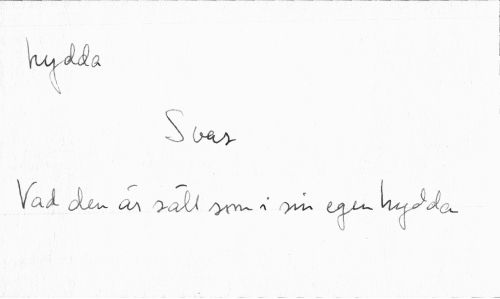 hydda
Svar
Vad den är säll som i sin egen hydda